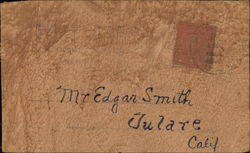 Mr Edgar Smith
Tulare
Calif